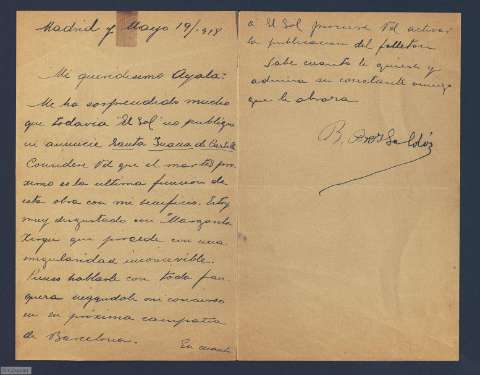 Madrid y Mayo 19/918
Mi queridisimo Ayala:
Me ha sorprendido mucho
que todavia "El Sol" no publique
ni anuncie Santa Juana de Castilla
Considere Vd que el martes pro-
ximo es la ultima funcion de
esta obra con mi beneficio. Estoy
muy disgustado con Margarita
Xirgu que procede con una
irregularidad inconcevible.
Pienso hablarle con toda fran-
queza negandole mi concurso
en su próxima campaña
de Barcelona. En cuanto
á El Sol procure Vd activar
la publicacion del folleton
Sabe cuanto le quiere y
admira su constante amigo
que le abraza
B. Pérez Galdós